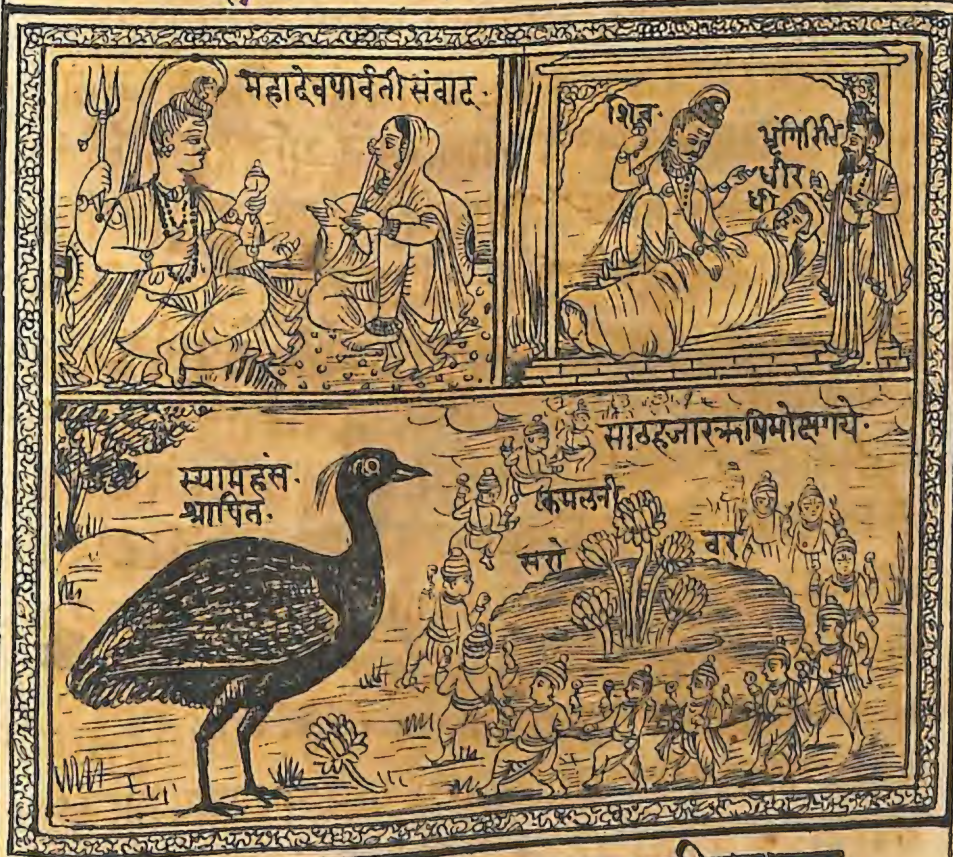 महादेवपार्वती संवाद.
शिव.
भृंगिरिटि
धीर
धी
स्यामहंस.
श्रापित.
साठहजारऋषिमोक्षगये.
कमलनी
सरो वर